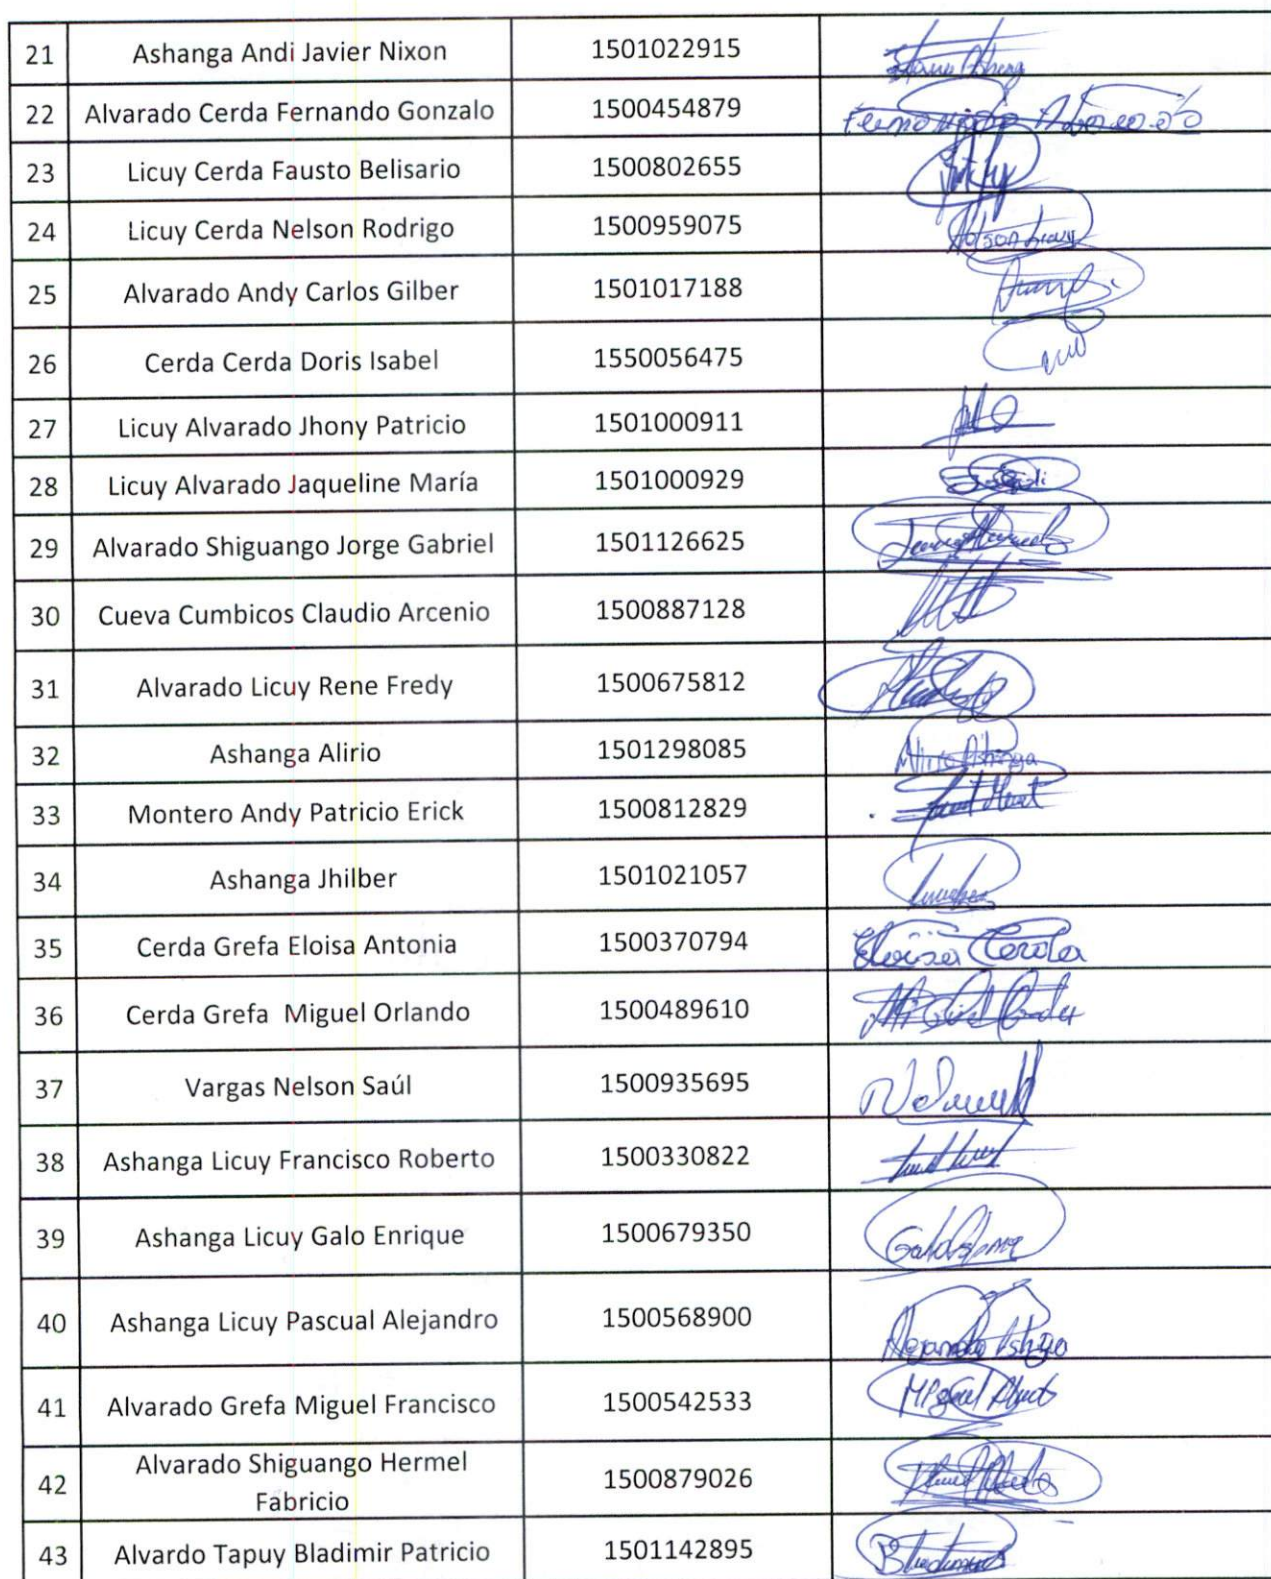 21 Ashanga Andi Javier Nixon 1501022915
22 Alvarado Cerda Fernando Gonzalo 1500454879
23 Licuy Cerda Fausto Belisario 1500802655
24 Licuy Cerda Nelson Rodrigo 1500959075 Nelson Licuy
25 Alvarado Andy Carlos Gilber 1501017188
26 Cerda Cerda Doris Isabel 1550056475
27 Licuy Alvarado Jhony Patricio 1501000911
28 Licuy Alvarado Jaqueline María 1501000929
29 Alvarado Shiguango Jorge Gabriel 1501126625
30 Cueva Cumbicos Claudio Arcenio 1500887128
31 Alvarado Licuy Rene Fredy 1500675812
32 Ashanga Alirio 1501298085
33 Montero Andy Patricio Erick 1500812829
34 Ashanga Jhilber 1501021057
35 Cerda Grefa Eloisa Antonia 1500370794 Eloisa Cerda
36 Cerda Grefa  Miguel Orlando 1500489610
37 Vargas Nelson Saúl 1500935695
38 Ashanga Licuy Francisco Roberto 1500330822
39 Ashanga Licuy Galo Enrique 1500679350
40 Ashanga Licuy Pascual Alejandro 1500568900
41 Alvarado Grefa Miguel Francisco 1500542533
42 Alvarado Shiguango Hermel
Fabricio 1500879026
43 Alvardo Tapuy Bladimir Patricio 1501142895